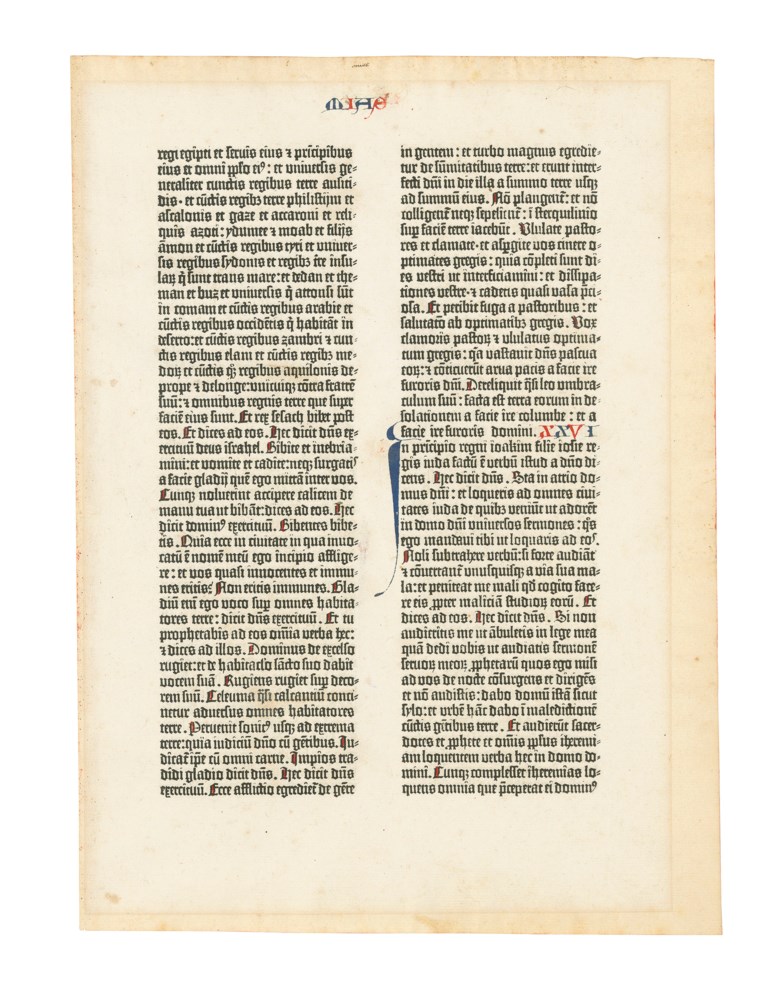 MIAS
regi egipti et servis eius ⁊ pricipibus
eius et omni pplo ei⁹: et universis ge⸗
neraliter cunctis regibus terre ausiti⸗
dis· et cūctis regibꝫ terre philistijm et
ascalonis et gaze et accaroni et reli⸗
quijs azoti: ydumee ⁊ moab et filijs
āmon et cūctis regibus tyri et univer⸗
sis regibus sydonis et regibꝫ tre insu⸗
laꝝ q̄ sunt trans mare: et dedan et the⸗
man et buz et universis q̄ attonsi sūt
in comam et cūctis regibus arabie et
cūctis regibus occidētis q̄ habitāt in
deserto: et cūctis regibus zambri ⁊ cun⸗
ctis regibus elam et cūctis regibꝫ me⸗
doꝝ et cūctis q̄ꝫ regibus aquilonis de⸗
prope ⁊ delonge: unicuiqꝫ cōtra fratrē
suū: ⁊ omnibus regnis terre que super
faciē eius sunt. Et rex sesach bibet post
eos. Et dices ad eos. Hec dicit dn̄s ex⸗
ercituū deus israhel. Bibite et inebria⸗
mini: et vomite et cadite: neqꝫ surgatis
a facie gladij quē ego mittā inter vos.
Cunqꝫ noluerint accipere calicem de
manu tua ut bibāt: dices ad eos. Hec
dicit domin⁹ exercituū. Bibentes bibe⸗
tis. Quia ecce in civitate in qua invo⸗
catū ē nomē meū ego incipio afflige⸗
re: et vos quasi innocentes et immu⸗
nes eritis? Non eritis immunes. Gla⸗
diū enī ego voco sup omnes habita⸗
tores terre: dicit dn̄s exercituū. Et tu
prophetabis ad eos omīa verba hec:
⁊ dices ad illos. Dominus de excelso
rugiet: et de habitaclo sācto suo dabit
vocem suā. Rugiens rugiet sup deco⸗
rem suū. Celeuma q̄si calcantiū conci⸗
netur adversus omnes habitatores
terre. Pervenit sonit⁹ usqꝫ ad extrema
terre: quia iudiciū dn̄o cū gētibus. Iu⸗
dicat ip̄e cū omni carne. Impios tra⸗
didi gladio dicit dn̄s. Hec dicit dn̄s
exercituū. Ecce afflictio egrediet̄ de gēte
in gentem: et turbo magnus egredie⸗
tur de sūmitatibus terre: et erunt inter⸗
fecti dn̄i in die illa a summo terre usqꝫ
ad summū eius. Nō plangent̄: et nō
colligent̄ neqꝫ sepelient̄: ī sterquilinio
sup faciē terre iacebūt. Ululate pasto⸗
res et clamate· et aspgite vos cinere o⸗
ptimates gregis: quia cōpleti sunt di⸗
es vestri ut interficiamini: et dissipa⸗
tiones vestre· ⁊ cadetis quasi vasa p̄ci⸗
osa. Et peribit fuga a pastoribus: et
salvatio ab optimatibꝫ gregis. Vox
clamoris pastoꝝ ⁊ ululatus optima⸗
tum gregis: q̄a vastavit dn̄s pascua
eoꝝ: ⁊ cōticuerūt arva pacis a facie ire
furoris dn̄i. Dereliquit q̄si leo umbra⸗
culum suū: facta est terra eorum in de⸗
solationem a facie ire columbe: et a
facie ire furoris domini. XXVI
In pricipio regni ioakim filii iosie re⸗
gis iuda factū ē verbū istud a dn̄o di⸗
cens. Hec dicit dn̄s. Sta in atrio do⸗
mus dn̄i: et loqueris ad omnes civi⸗
tates iuda de quibꝫ veniūt ut adorēt
in domo dn̄i universos sermones: q̄s
ego mandavi tibi ut loquaris ad eos.
Noli subtrahere verbū: si forte audiāt
⁊ cōvertant̄ unusquisqꝫ a via sua ma⸗
la: et peniteat me mali qd̄ cogito face⸗
re eis ꝓpter maliciā studioꝝ eorū. Et
dices ad eos. Hec dicit dn̄s. Si non
audieritis me ut ābuletis in lege mea
quā dedi vobis ut audiatis sermonē
servoꝝ meoꝝ ꝓphetarū quos ego misi
ad vos de nocte cōsurgens et dirigēs
et nō audistis: dabo domū istā sicut
sylo: et urbē hāc dabo ī maledictionē
cūctis gētibus terre. Et audierūt sacer⸗
dotes et ꝓphete et omīs pplus iheremi⸗
am loquentem verba hec in domo do⸗
mini. Cunqꝫ complesset iheremias lo⸗
quens omnia que p̄ceperat ei domin⁹